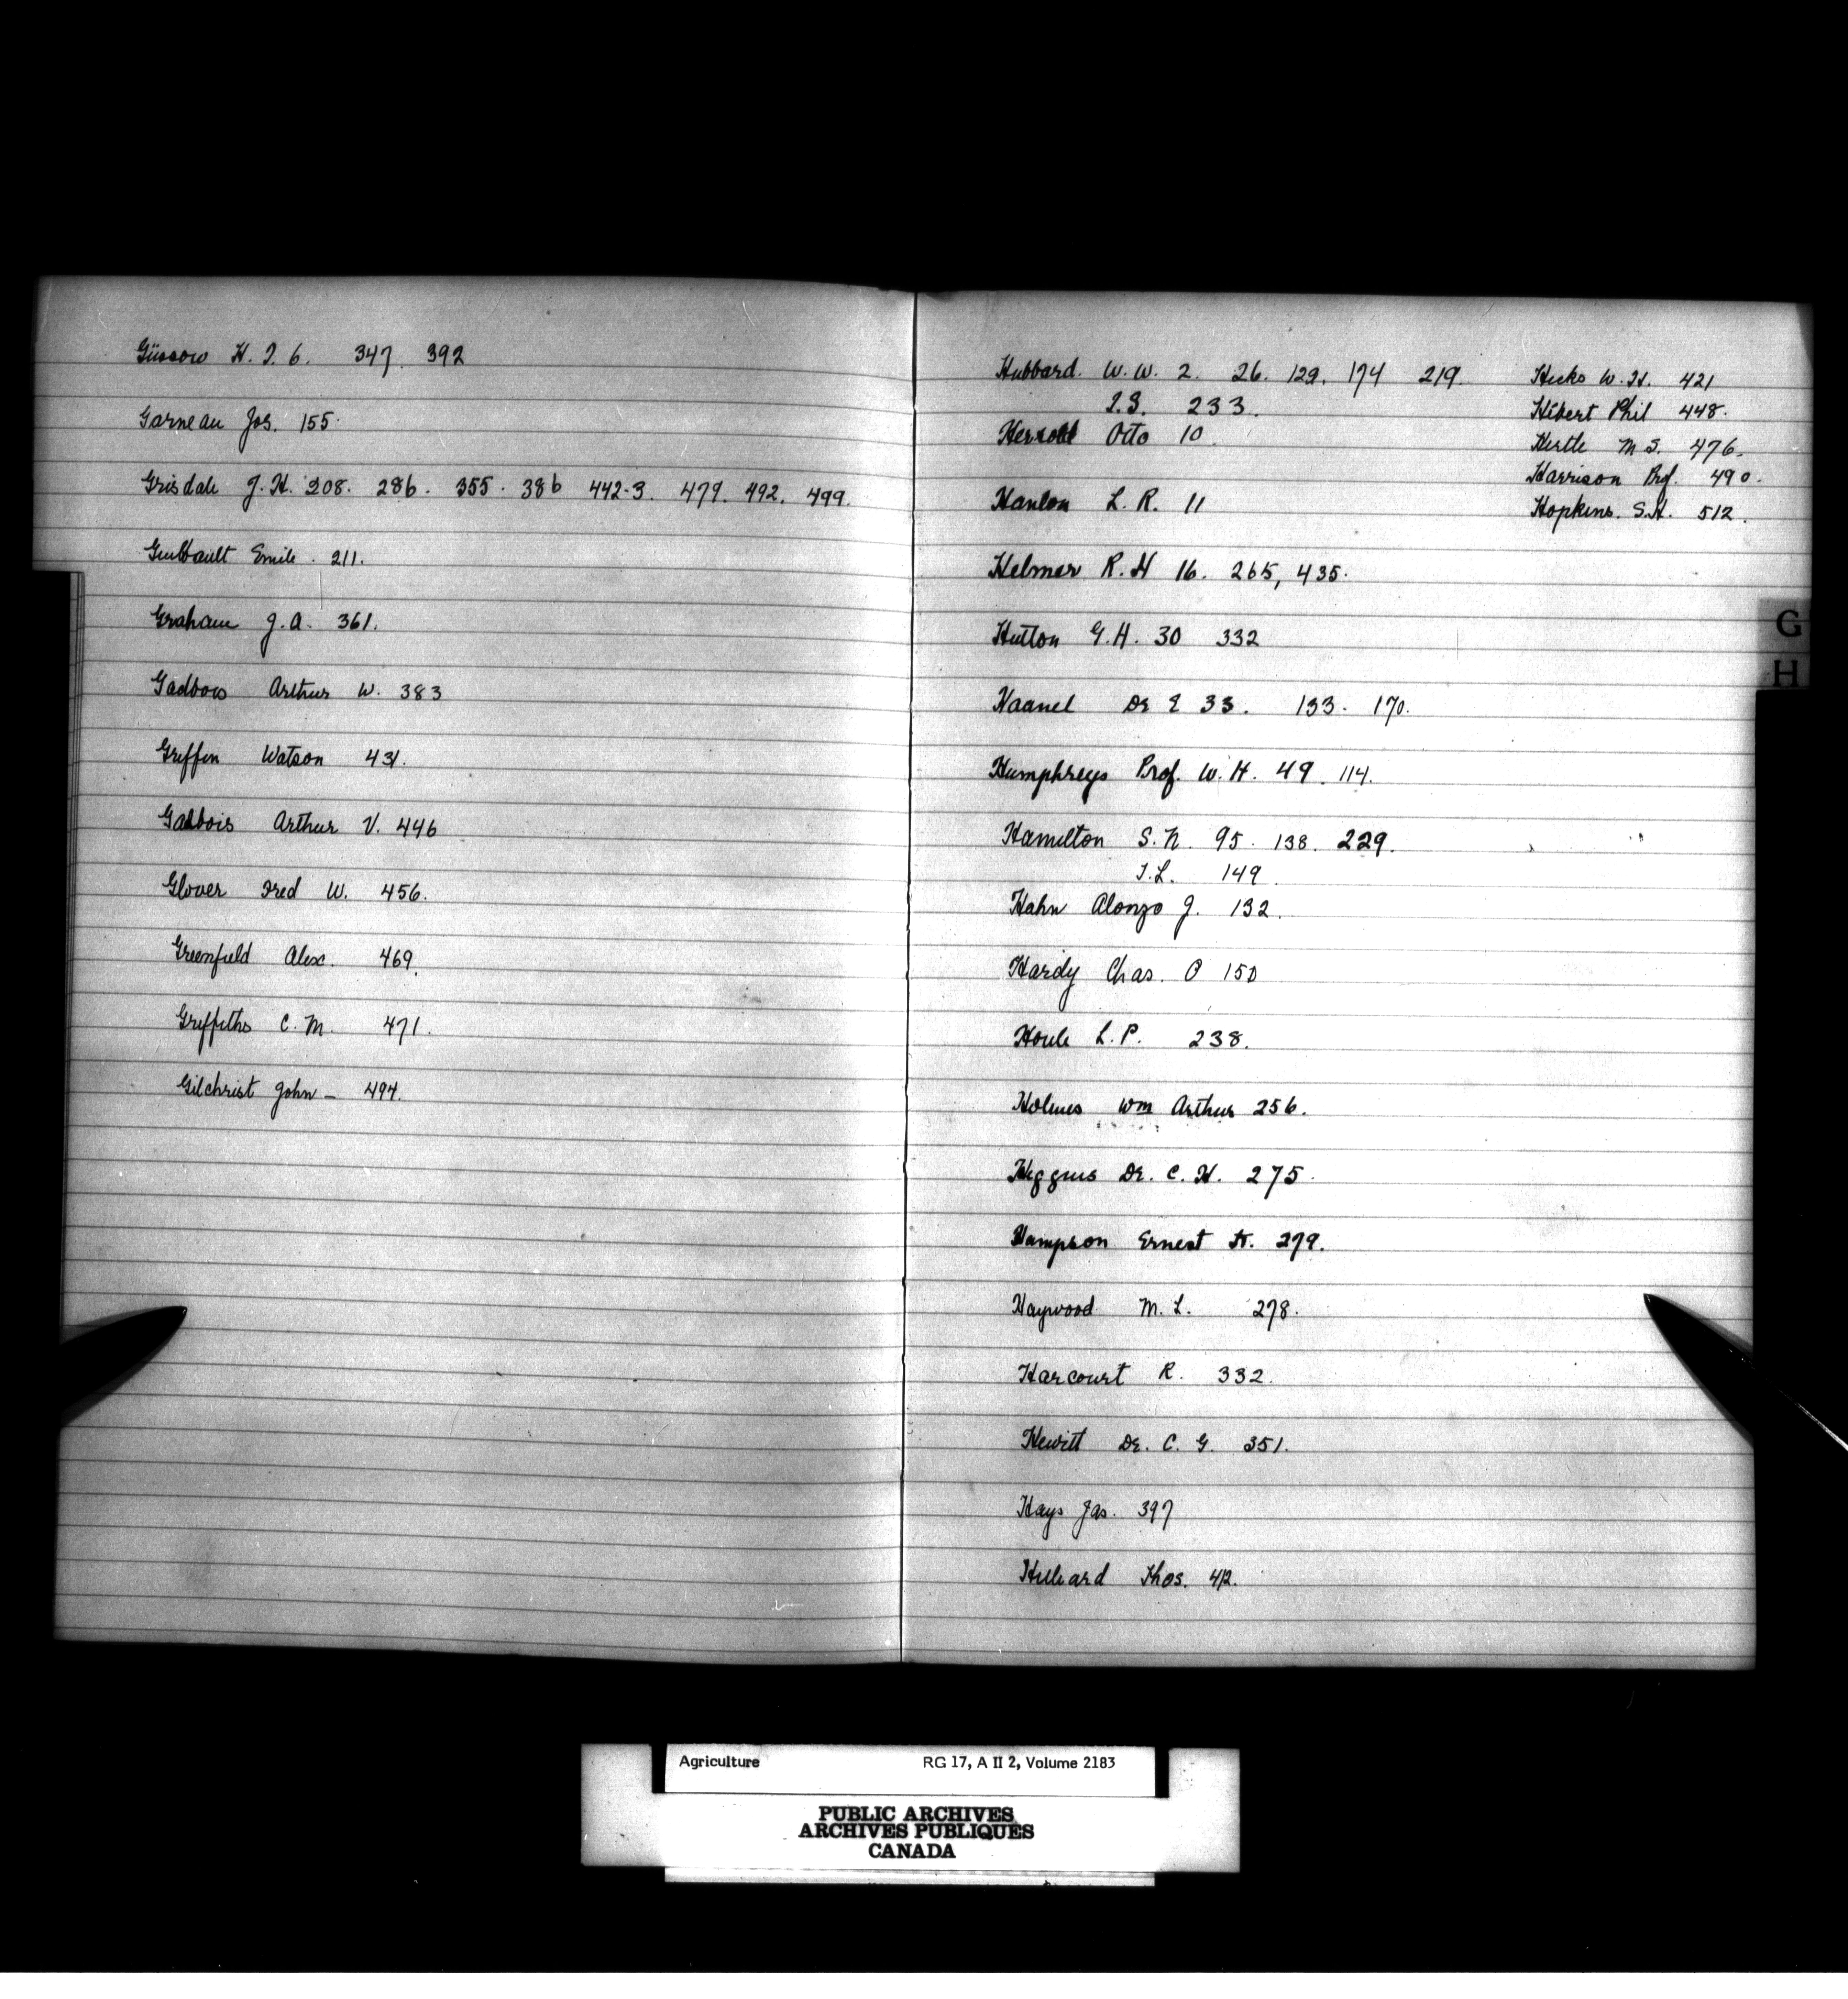 Güssow H. T. 6. 347. 392
Garneau Jos. 155.
Grisdale J. H. 208. 286. 355. 386 442-3. 479. 492. 499.
Guilbault Emile. 211.
Graham J. A. 361.
Gadbois Arthur W. 383
Griffin Watson 431.
Gadbois Arthur V. 446
Glover Fred W. 456.
Greenfield Alex. 469.
Griffiths C. M. 471.
Gilchrist John - 494.
Hubbard. W. W. 2. 26. 129. 174 219.
T. S. 233.
Otto 10.
Hanlon L. R. 11
Helmer R. H 16. 265, 435.
Hutton G. H. 30 332
Haanel Dr E 33. 133. 170.
Humphreys Prof. W. H. 49. 114.
Hamilton S. N. 95. 138. 229.
T. L. 149.
Hahn Alonzo J. 132.
Hardy Chas. O 150
Houle L. P. 238.
Holmes Wm Arthur 256.
Higgins Dr. C. H. 275.
Hampson Ernest H. 279.
Haywood M. L. 278.
Harcourt R. 332.
Hewitt Dr. C. G. 351.
Hays Jas. 397
Hilliard Thos. 412.
Hicks W. H. 421
Hibert Phil 448.
Hertle M S. 476.
Harrison Prof. 490.
Hopkins. S. H. 512.
G
H
Agriculture RG 17, A II 2, Volume 2183
PUBLIC ARCHIVES
ARCHIVES PUBLIQUES
CANADA